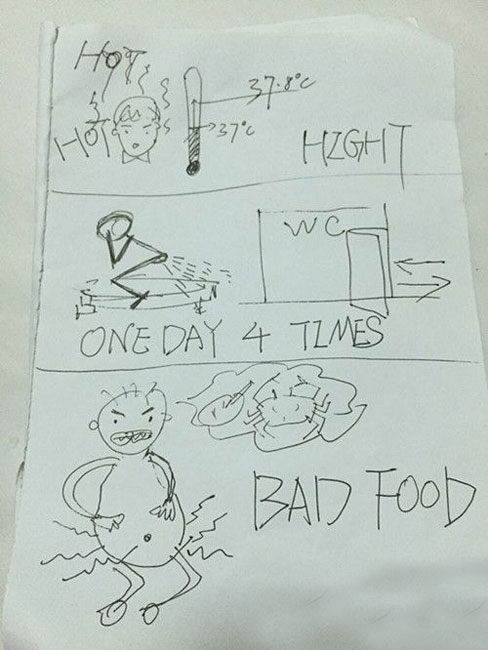 HOT
37.8°C
HOT
37°C
HIGHT
WC
ONE DAY 4 TIMES
BAD FOOD